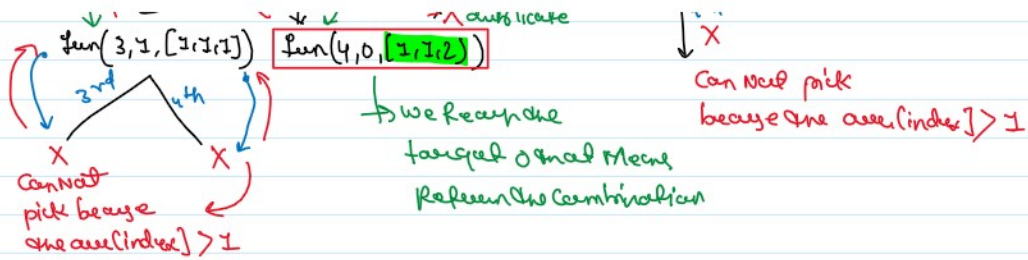 duplicate
fun(3,1,[1,1,1]) fun(4,0,[1,1,2])
X
3rd 4th
Can Not pick
because the arr[index] > 1
→ we Reach the
target 0 that Means
Return the Combination
X X
Can Not
pick because
the arr[index] > 1